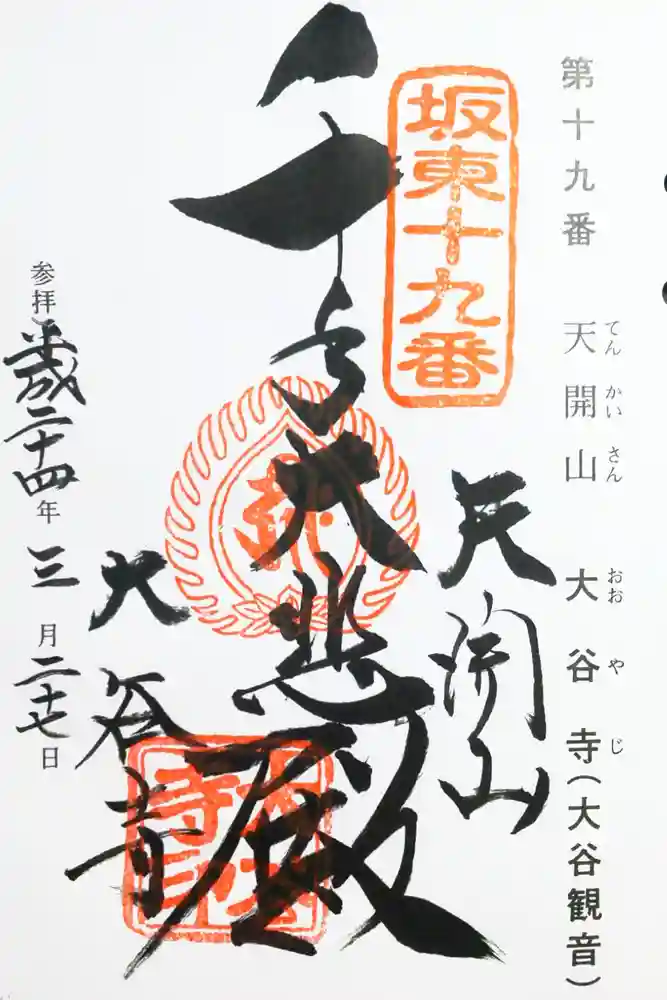 第十九番 天開山 大谷寺(大谷観音)
てんかいさん おおやじ
坂東十九番
天開山
千手大悲殿
大谷寺
大谷寺印
参拝 平成二十四年三月二十七日